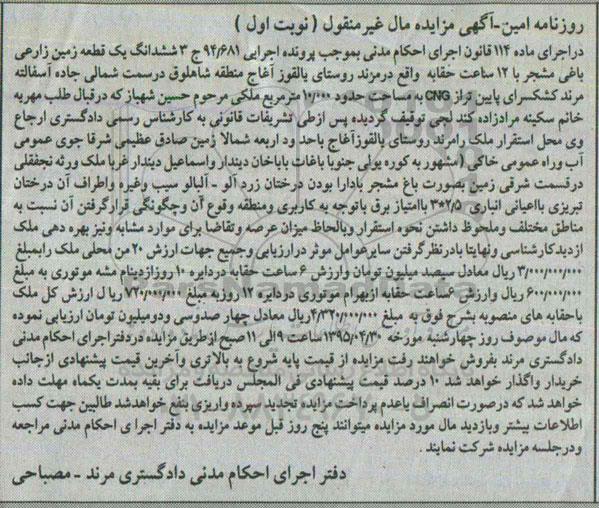 روزنامه امین-آگهی مزایده مال غیرمنقول ( نوبت اول )
دراجرای ماده ۱۱۴ قانون اجرای احکام مدنی بموجب پرونده اجرایی ۹۴/۶۸۱ ج ۳ ششدانگ یک قطعه زمین زارعی
باغی مشجر با ۱۲ ساعت حقابه واقع درمرند روستای یالقوز آغاج منطقه شاهلوق درسمت شمالی جاده آسفالته
مرند کشکسرای پایین تر از CNG به مساحت حدود ۱۰/۰۰۰ مترمربع ملکی مرحوم حسین شهباز که درقبال طلب مهریه
خانم سکینه مرادزاده کند لجی توقیف گردیده پس ازطی تشریفات قانونی به کارشناس رسمی دادگستری ارجاع
وی محل استقرار ملک رامرند روستای یالقوزآغاج باحد ود اربعه شمالا زمین صادق عظیمی شرقا جوی عمومی
آب وراه عمومی خاکی (مشهور به کوره یولی جنوبا باغات باباخان دیندار واسماعیل دیندار غربا ملک ورثه نجفقلی
درقسمت شرقی زمین بصورت باغ مشجر بادارا بودن درختان زرد آلو - آلبالو سیب وغیره واطراف آن درختان
تبریزی بااعیانی انباری ۲/۵*۳ باامتیاز برق باتوجه به کاربری ومنطقه وقوع آن وچگونگی قرارگرفتن آن نسبت به
مناطق مختلف وملحوظ داشتن نحوه استقرار وبالحاظ میزان عرصه وتقاضا برای موارد مشابه ونیز بهره دهی ملک
ازدیدکارشناسی ونهایتا بادرنظرگرفتن سایرعوامل موثر درارزیابی وجمیع جهات ارزش ۲۰ من محلی ملک رابمبلغ
۳/۰۰۰/۰۰۰/۰۰۰ ریال معادل سیصد میلیون تومان وارزش ۶ ساعت حقابه دردایره ۱۰ روزازدینام مشه موتوری به مبلغ
۶۰۰/۰۰۰/۰۰۰ ریال وارزش ۶ساعت حقابه ازبهرام موتوری دردایره ۱۲ روزبه مبلغ ۷۲۰/۰۰۰/۰۰۰ ریا ل ارزش کل ملک
باحقابه های منصوبه بشرح فوق به مبلغ ۴/۳۲۰/۰۰۰/۰۰۰ریال معادل چهار صدوسی ودومیلیون تومان ارزیابی نموده
که مال موصوف روز چهارشنبه مورخه ۱۳۹۵/۰۴/۳۰ ساعت ۹الی ۱۱صبح ازطریق مزایده دردفتراجرای احکام مدنی
دادگستری مرند بفروش خواهند رفت مزایده از قیمت پایه شروع به بالاتری وآخرین قیمت پیشنهادی ازجانب
خریدار واگذار خواهد شد ۱۰ درصد قیمت پیشنهادی فی المجلس دریافت برای بقیه بمدت یکماه مهلت داده
خواهد شد که درصورت انصراف یاعدم پرداخت مزایده تجدید سپرده واریزی بنفع خواهدشد طالبین جهت کسب
اطلاعات بیشتر وبازدید مال مورد مزایده میتوانند پنج روز قبل موعد مزایده به دفتر اجرا ی احکام مدنی مراجعه
ودرجلسه مزایده شرکت نمایند .
دفتر اجرای احکام مدنی دادگستری مرند - مصباحی